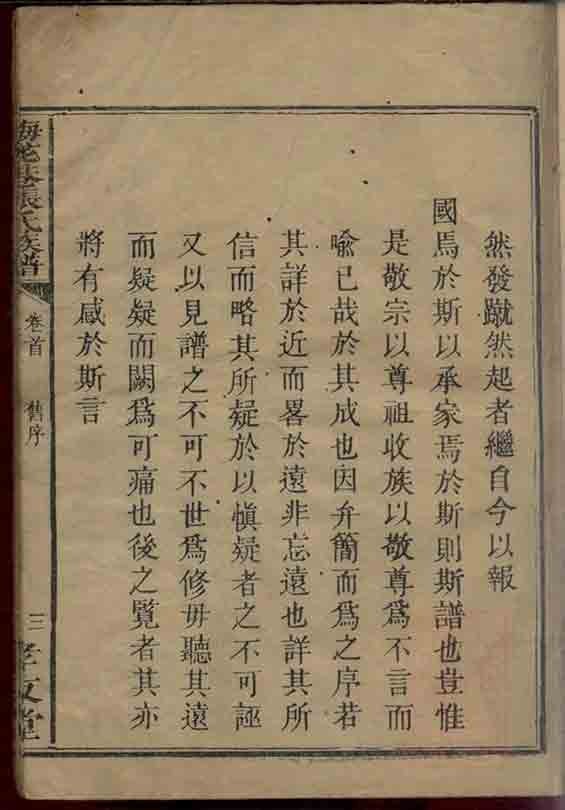 然發蹴然起者繼自今以報
國焉於斯以承家焉於斯則斯譜也豈惟
是敬宗以尊祖收族以敬尊爲不言而
喩已哉於其成也因弁簡而爲之序若
其詳於近而畧於遠非忘遠也詳其所
信而略其所疑於以愼疑者之不可誣
又以見譜之不可不世爲修毋聽其遠
而疑疑而闕爲可痛也後之覽者其亦
將有感於斯言
張氏族譜
卷首
舊序
三
孝友堂